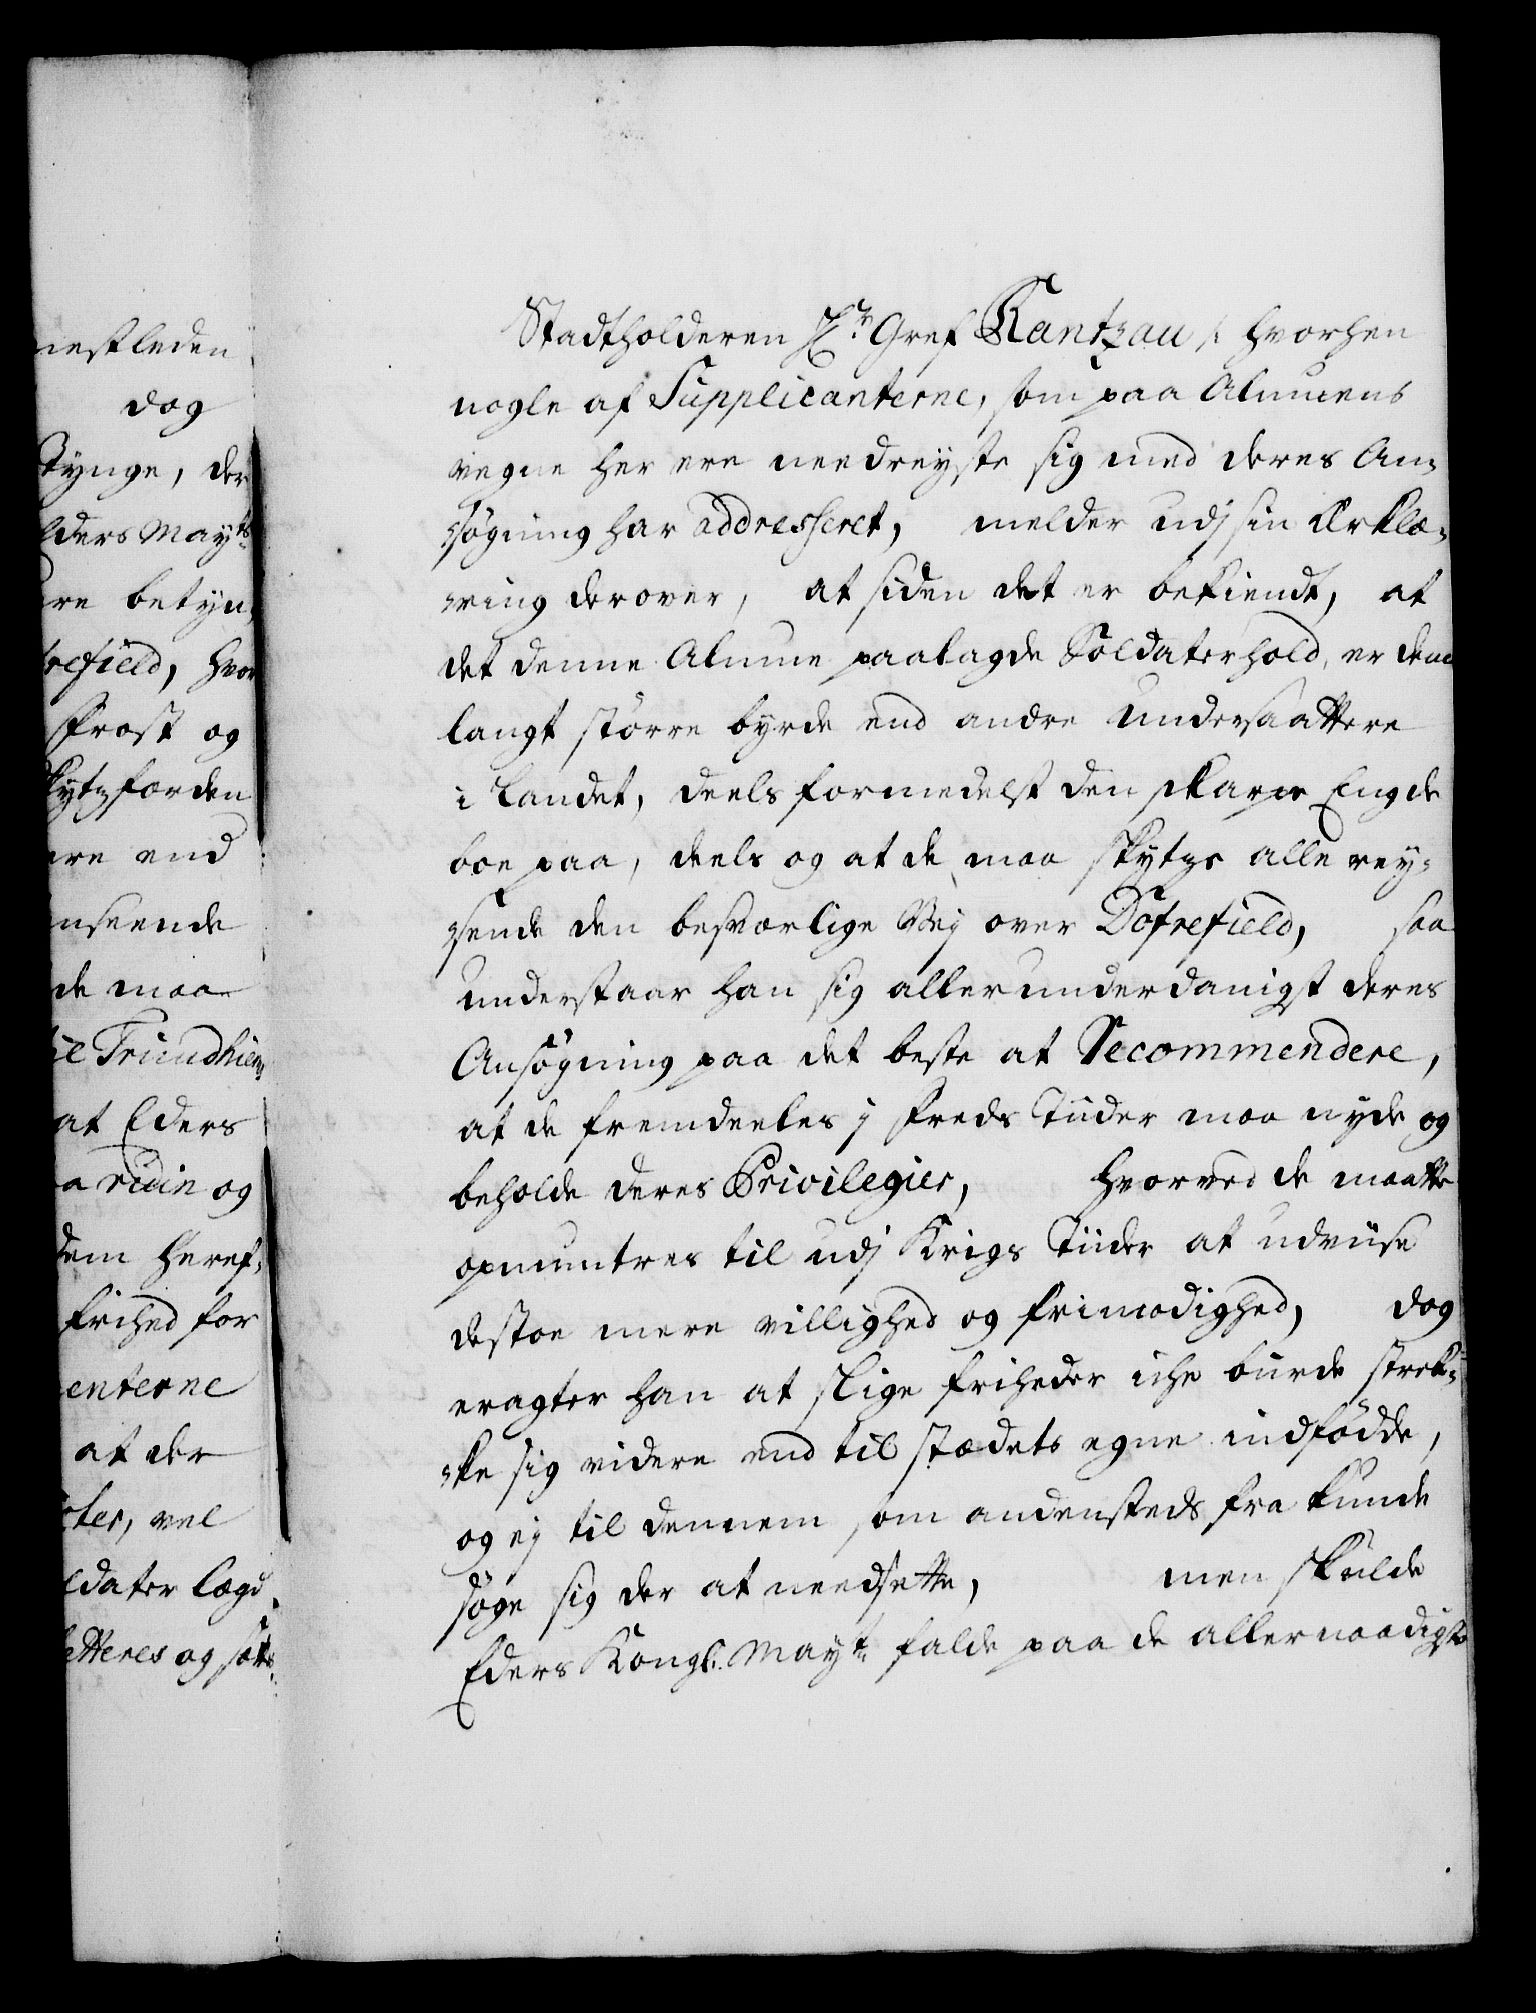 nestleden
dog
Tynge, der
Eders Mayts
re betyn,
refield, hvor
Frost og
Skytzfærden
ere end
nseende
de maae
til Trundhiem
at Eders
a ruin og
dem heref,
frihed for
enterne
at der
ter, vel
ldater Lægd
etteres og sætt
Stadtholderen Hr. Gref Rantzau /: hvorhen
nogle af Supplicanterne, som paa Almuens
vegne her ere needreyste sig med deres An,
søgning har addresseret, melder udj sin Erklæ,
ring derover, at siden det er bekiendt, at
det denne Almue paalagde Soldaterhold, er dem
langt større byrde end andre Undersaattere
i Landet, deels formedelst den skarpe Eng de
boe paa, deels og at de maa skytze alle rey,
sende den besværlige Vej over Dofrefield, saa
understaar han sig allerunderdanigst deres
Ansøgning paa det beste at Recommendere,
at de fremdeeles j Freds Tiider maa nyde og
beholde deres Privilegier, hvorved de maatte
opmuntres til udj Krigs Tiider at udviise
destoe mere villighed og frimodighed, dog
eragter han at slige friheder icke burde strek,
ke sig videre end til stædets egne indfødde,
og ej til dennem som andensteds fra kunde
søge sig der at needsette, men skulde
Eders Kongl. Mayt. falde paa de allernaadigste